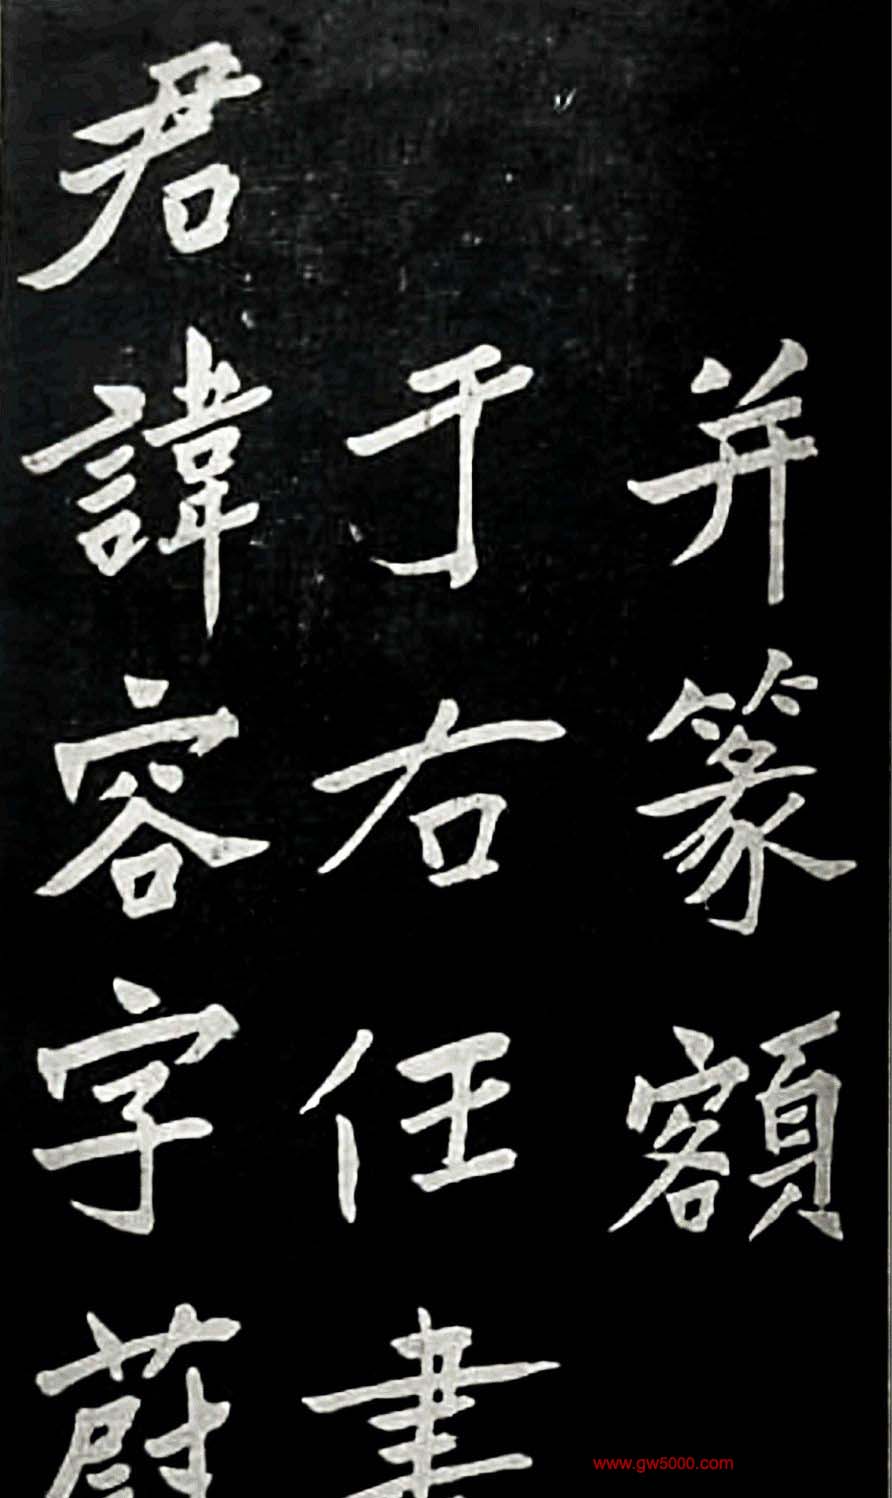 并篆額
于右任書
君諱容字蔚
www.gw5000.com